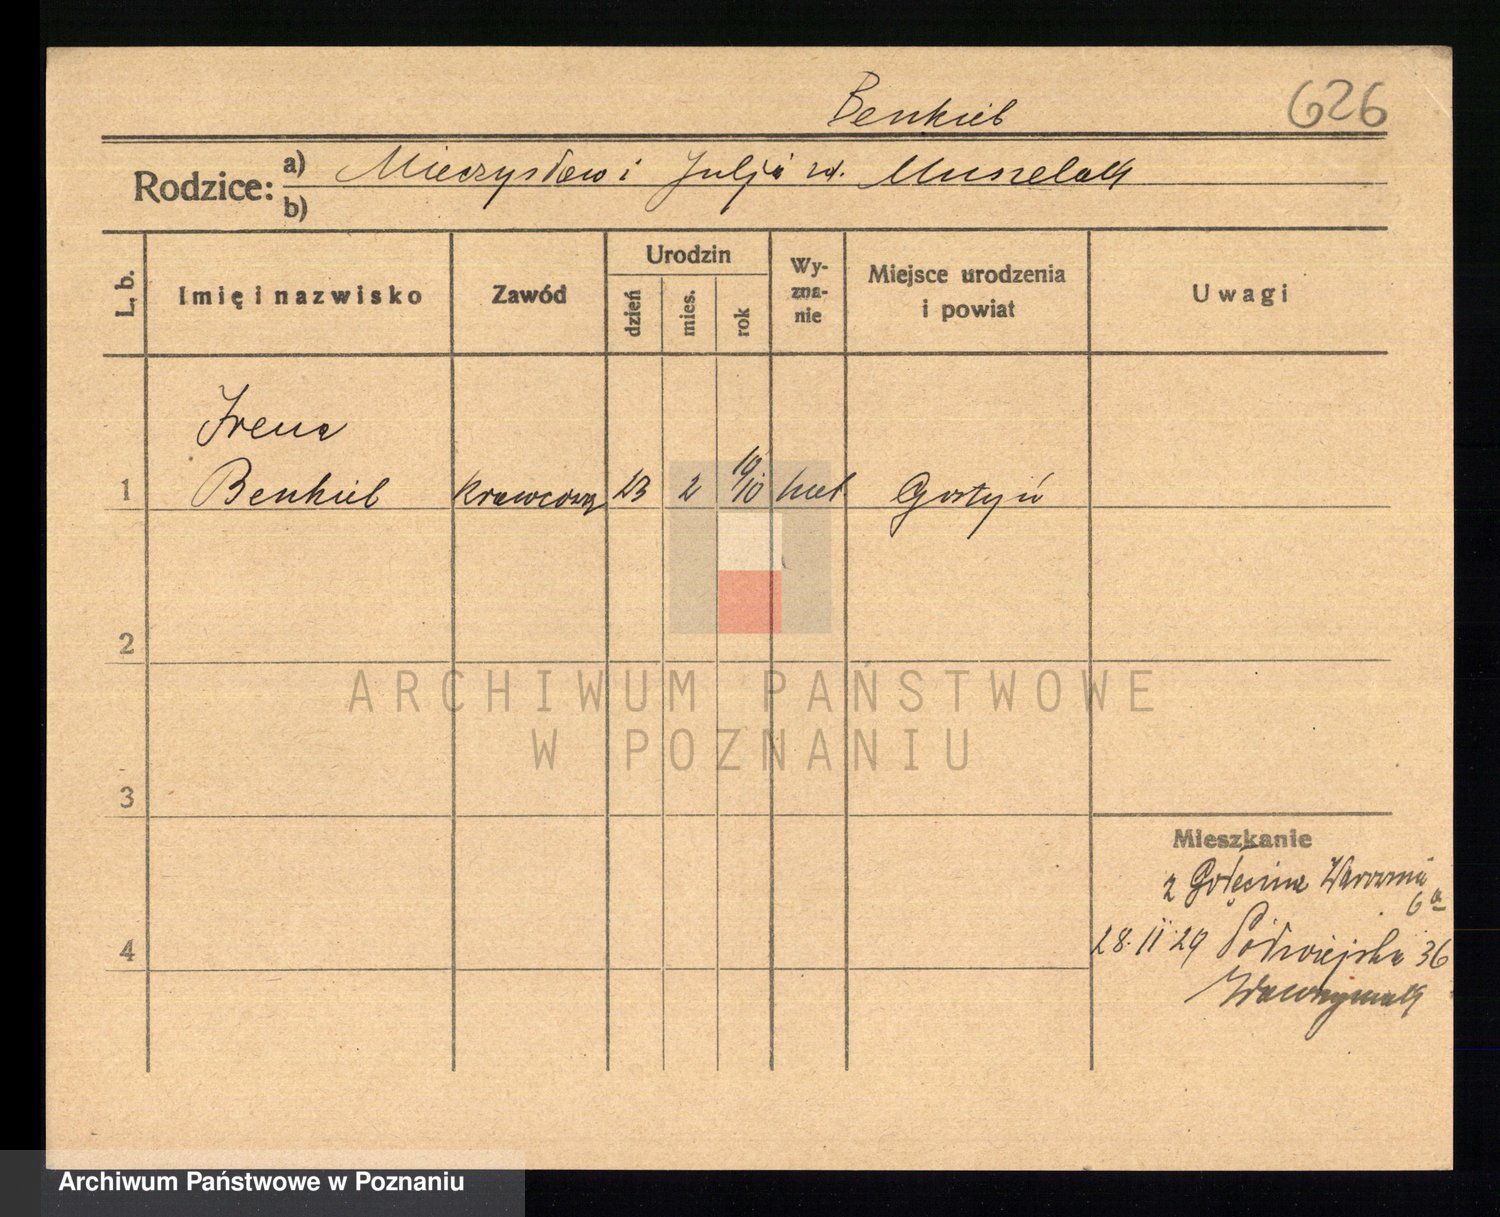 Benkiel
626
Rodzice:
a) Mieczysław i Julja zd. Muszelak
b)
L. b.
Imię i nazwisko
Zawód
Urodzin
dzień
mies.
rok
Wy-
zna-
nie
Miejsce urodzenia
i powiat
Uwagi
Irena
1 Benkiel krawcowa 23 2 10 kat. Gostyń
2
3
4
Mieszkanie
z Golęcina
6a
28. II 29 36
Wawrzyniak
ARCHIWUM PAŃSTWOWE
W POZNANIU
Archiwum Państwowe w Poznaniu